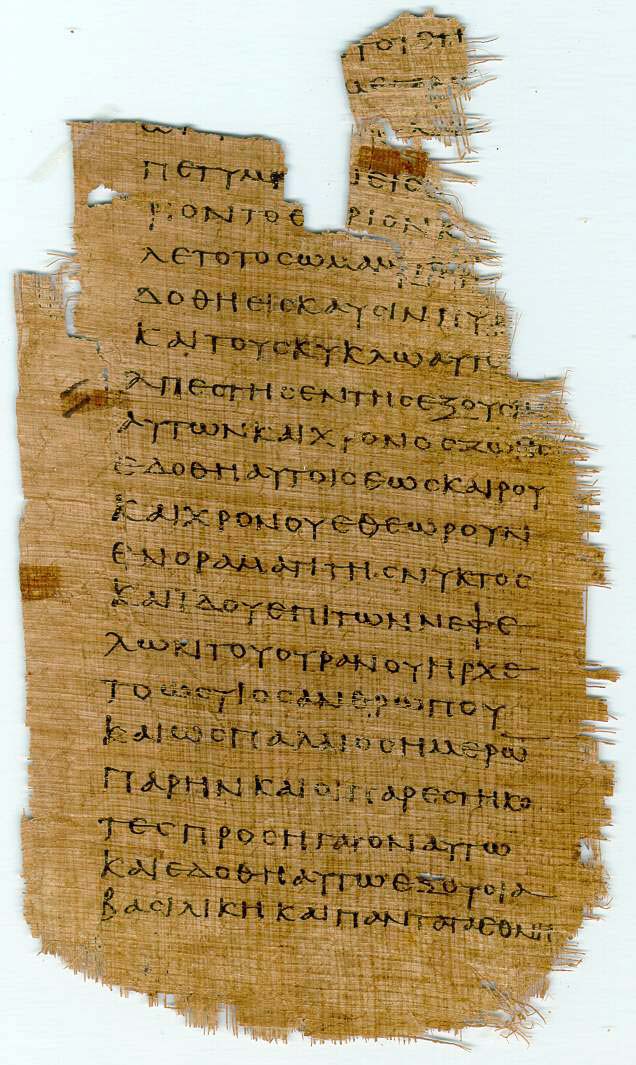 ΠΕΤΥΜ
ΛΕΤΟΤΟϹΩΜΑ
ΔΟΘΗΕΙϹΚΑΥϹΙΝΠΥΡ
ΚΑΙΤΟΥϹΚΥΚΛΩΑΥΤΟ
ΑΠΕϹΤΗϹΕΝΤΗϹΕΞΟΥϹΙΑ
ΑΥΤΩΝΚΑΙΧΡΟΝΟϹΖΩΗϹ
ΕΔΟΘΗΑΥΤΟΙϹΕΩϹΚΑΙΡΟΥ
ΚΑΙΧΡΟΝΟΥΕΘΕΩΡΟΥΝ
ΕΝΟΡΑΜΑΤΙΤΗϹΝΥΚΤΟϹ
ΚΑΙΙΔΟΥΕΠΙΤΩΝΝΕΦΕ
ΛΩΝΤΟΥΟΥΡΑΝΟΥΗΡΧΕ
ΤΟΩϹΥΙΟϹΑΝΘΡΩΠΟΥ
ΚΑΙΩϹΠΑΛΑΙΟϹΗΜΕΡΩ̅
ΠΑΡΗΝΚΑΙΟΙΠΑΡΕϹΤΗΚΟ
ΤΕϹΠΡΟϹΗΓΑΓΟΝΑΥΤΩ
ΚΑΙΕΔΟΘΗΑΥΤΩΕΞΟΥϹΙΑ
ΒΑϹΙΛΙΚΗΚΑΙΠΑΝΤΑΤΑΕΘΝΗ